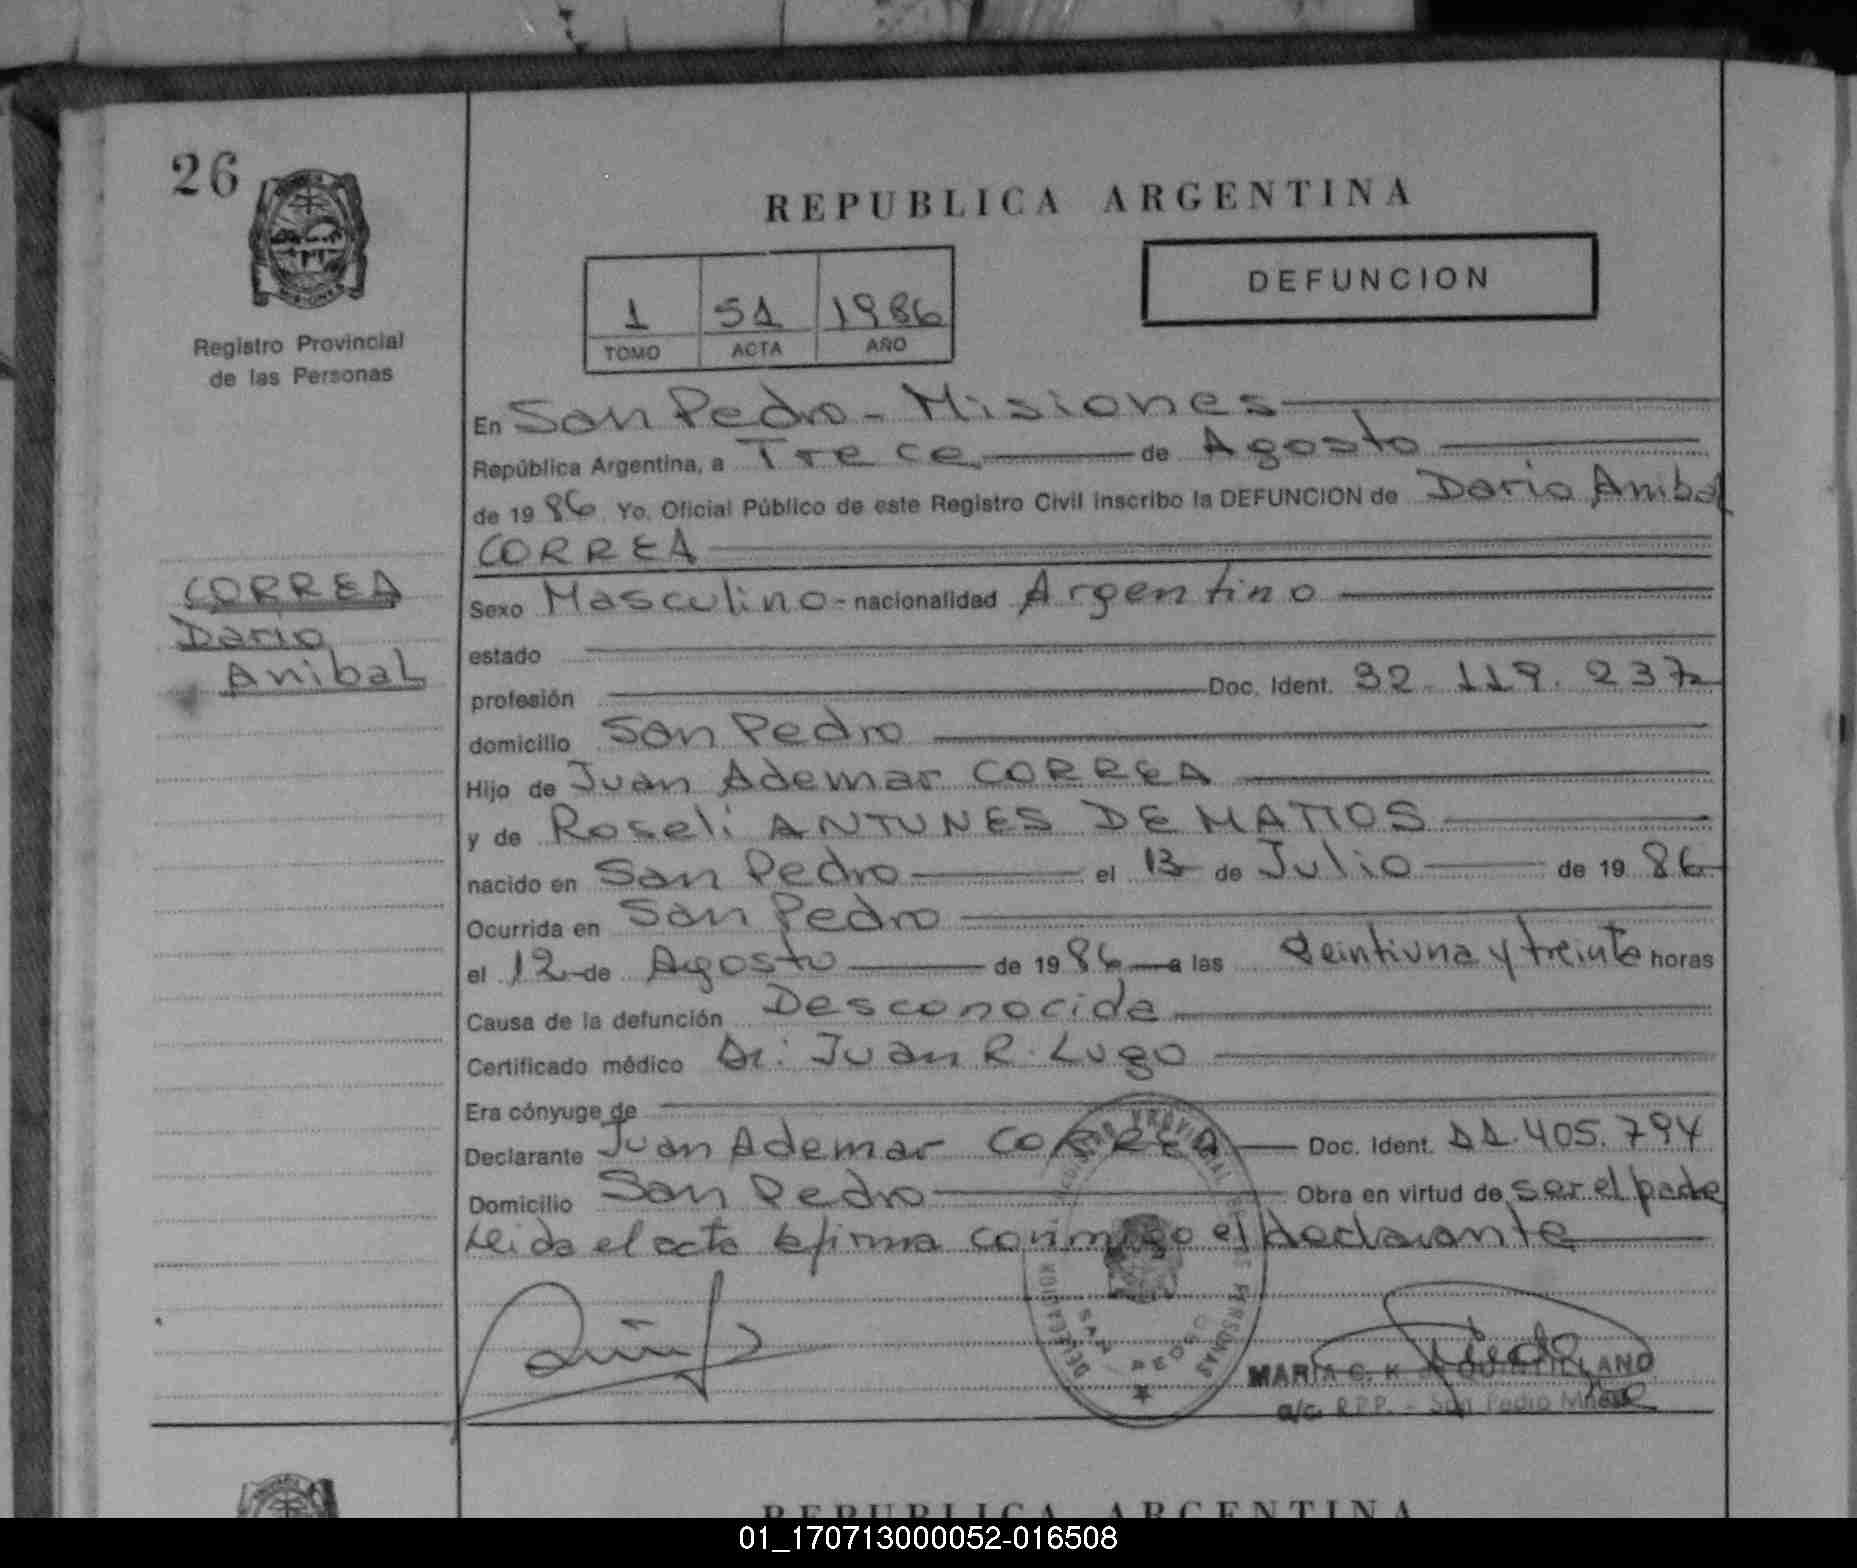 26
REPUBLICA ARGENTINA
DEFUNCION
1 51 1986
TOMO ACTA AÑO
Registro Provincial
de las Personas
En San Pedro - Misiones
República Argentina, a Trece de Agosto
de 1986 Yo, Oficial Público de este Registro Civil inscribo la DEFUNCION de Dario Anibal
CORREA
CORREA
Dario
Anibal
Sexo Masculino - nacionalidad Argentino
estado
profesión Doc. Ident. 32.119.237
domicilio San Pedro
Hijo de Juan Ademar CORREA
y de Roseli ANTUNES DE MATTOS
nacido en San Pedro el 13 de Julio de 1986
Ocurrida en San Pedro
el 12 de Agosto de 1986 a las Veintiuna y treinta horas
Causa de la defunción Desconocida
Certificado médico Dr. Juan R. Lugo
Era cónyuge de
Declarante Juan Ademar CORREA Doc. Ident. 11.405.794
Domicilio San Pedro Obra en virtud de ser el padre
Leida el acta la firma conmigo el declarante
MARIA C. K. QUINTILLANO
a/c R.P.P. - San Pedro
REPUBLICA ARGENTINA
01_170713000052-016508